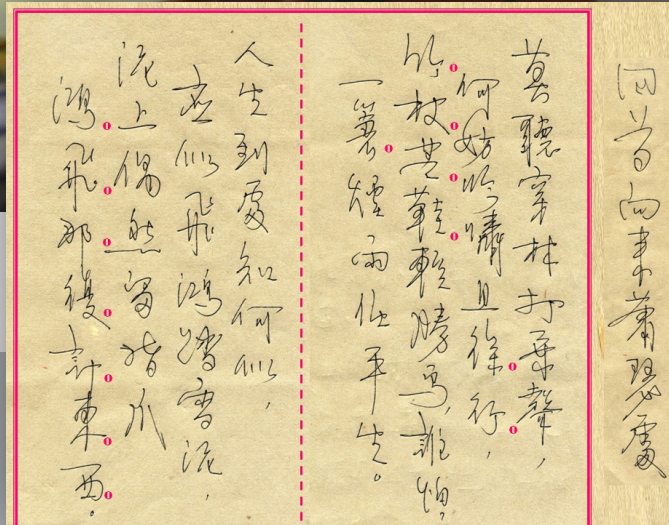 回首向来蕭瑟處
莫聽穿林打葉聲，
何妨吟嘯且徐行，
竹杖芒鞋輕勝馬，誰怕？
一蓑煙雨任平生。
人生到處知何似，
應似飛鴻踏雪泥，
泥上偶然留指爪
鴻飛那復計東西。